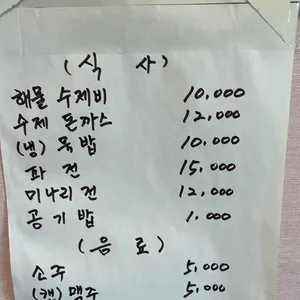 (식 사)
해물 수제비 10,000
수제 돈까스 12,000
(냉) 묵밥 10,000
파 전 15,000
미나리전 12,000
공 기 밥 1,000
(음 료)
소주 5,000
(캔) 맥주 5,000